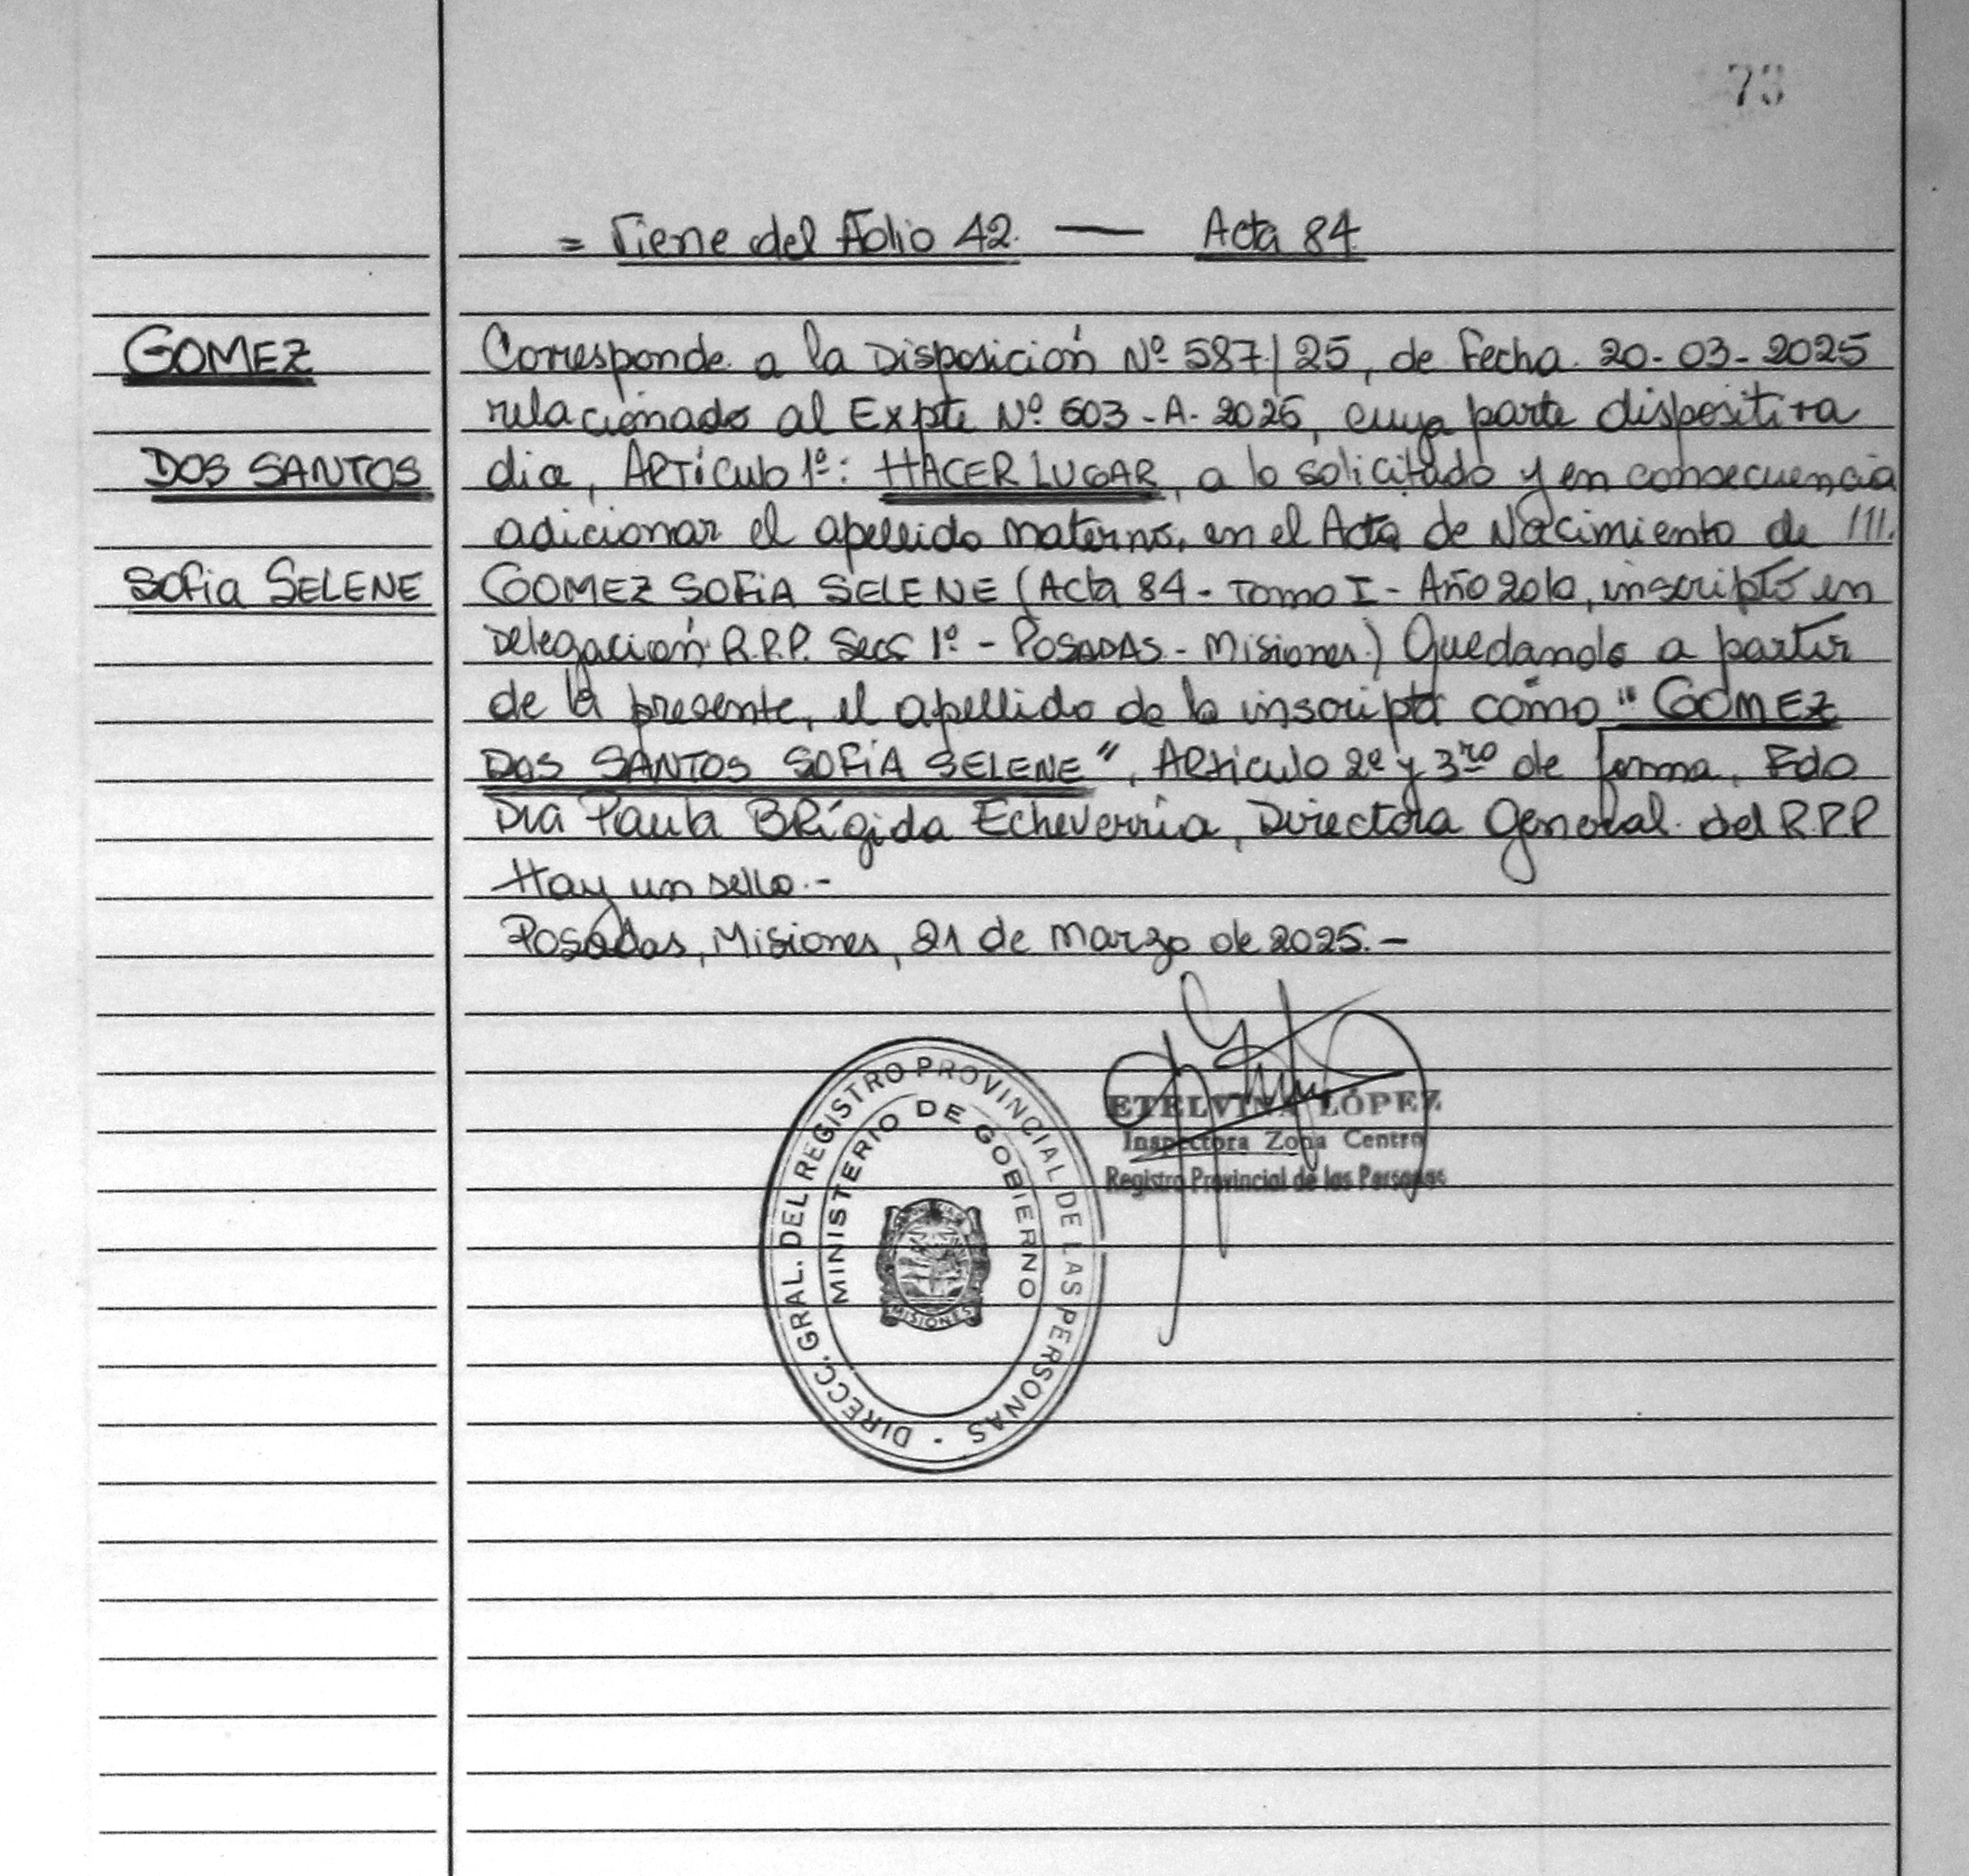 73
= Viene del Folio 42. — Acta 84
GOMEZ
DOS SANTOS
Sofia SELENE
Corresponde a la Disposición Nº 587/25, de Fecha 20-03-2025
relacionado al Expte Nº 603-A-2025, cuya parte dispositiva
dice, Artículo 1º: HACER LUGAR, a lo solicitado y en consecuencia
adicionar el apellido materno, en el Acta de Nacimiento de ///.
GOMEZ SOFIA SELENE (Acta 84 - Tomo I - Año 2010, inscripto en
Delegación R.P.P. Secc 1º - POSADAS - Misiones.) Quedando a partir
de la presente, el apellido de la inscripta como "GOMEZ
DOS SANTOS SOFIA SELENE", Articulo 2º y 3ro de forma. Fdo
Dra Paula Brígida Echeverria, Directora General del R.P.P
Hay un sello.-
Posadas, Misiones, 21 de marzo de 2025.-
ETELVINA LÓPEZ
Inspectora Zona Centro
Registro Provincial de las Personas
DIRECC. GRAL. DEL REGISTRO PROVINCIAL DE LAS PERSONAS -
MINISTERIO DE GOBIERNO
MISIONES